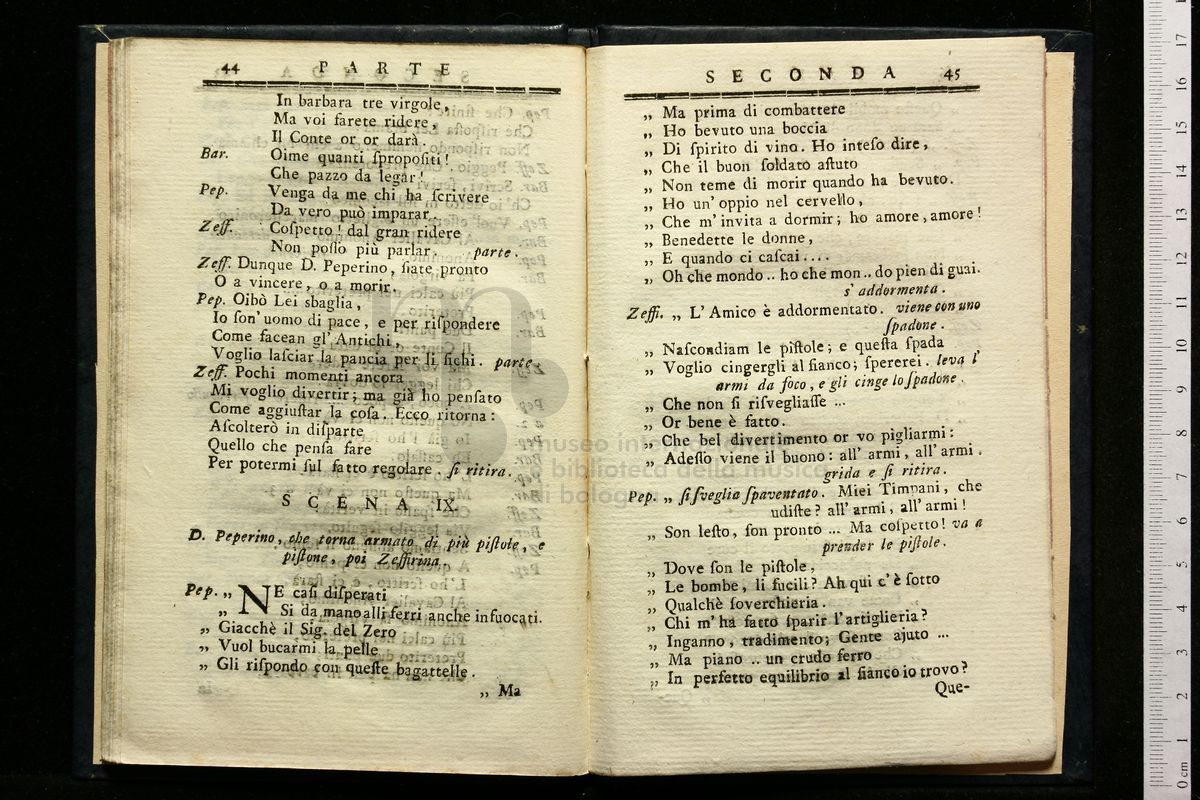 44 PARTE
In barbara tre virgole,
Ma voi farete ridere,
Il Conte or or darà.
Bar. Oime quanti ſpropoſiti!
Che pazzo da legar!
Pep. Venga da me chi ha ſcrivere
Da vero può imparar.
Zeff. Coſpetto! dal gran ridere
Non poſſo più parlar. parte.
Zeff. Dunque D. Peperino, ſiate pronto
O a vincere, o a morir.
Pep. Oibò Lei sbaglia,
Io ſon' uomo di pace, e per riſpondere
Come facean gl' Antichi,
Voglio laſciar la pancia per li fichi. parte.
Zeff. Pochi momenti ancora
Mi voglio divertir; ma già ho penſato
Come aggiuſtar la coſa. Ecco ritorna:
Aſcolterò in diſparte
Quello che penſa fare
Per potermi ſul fatto regolare. ſi ritira.
SCENA IX.
D. Peperino, che torna armato di più piſtole, e
piſtone, poi Zeffirina.
Pep. „ NE caſi diſperati
„ Si da mano alli ferri anche infuocati.
„ Giacchè il Sig. del Zero
„ Vuol bucarmi la pelle
„ Gli riſpondo con queſte bagattelle.
„ Ma
SECONDA 45
„ Ma prima di combattere
„ Ho bevuto una boccia
„ Di ſpirito di vino. Ho inteſo dire,
„ Che il buon ſoldato aſtuto
„ Non teme di morir quando ha bevuto.
„ Ho un' oppio nel cervello,
„ Che m' invita a dormir; ho amore, amore!
„ Benedette le donne,
„ E quando ci caſcai....
„ Oh che mondo.. ho che mon.. do pien di guai.
s' addormenta.
Zeffi. „ L' Amico è addormentato. viene con uno
ſpadone.
„ Naſcondiam le piſtole; e queſta ſpada
„ Voglio cingergli al fianco; ſpererei. leva l'
armi da foco, e gli cinge lo ſpadone.
„ Che non ſi riſvegliaſſe ...
„ Or bene è fatto.
„ Che bel divertimento or vo pigliarmi:
„ Adeſſo viene il buono: all' armi, all' armi.
grida e ſi ritira.
Pep. „ ſi ſveglia ſpaventato. Miei Timpani, che
udiſte? all' armi, all' armi!
„ Son leſto, ſon pronto ... Ma coſpetto! va a
prender le piſtole.
„ Dove ſon le piſtole,
„ Le bombe, li fucili? Ah qui c' è ſotto
„ Qualchè ſoverchieria.
„ Chi m' ha fatto ſparir l' artiglieria?
„ Inganno, tradimento; Gente ajuto ...
„ Ma piano .. un crudo ferro
„ In perfetto equilibrio al fianco io trovo?
Que-
museo inte
biblioteca della musica
di bolog
0 cm 1 2 3 4 5 6 7 8 9 10 11 12 13 14 15 16 17